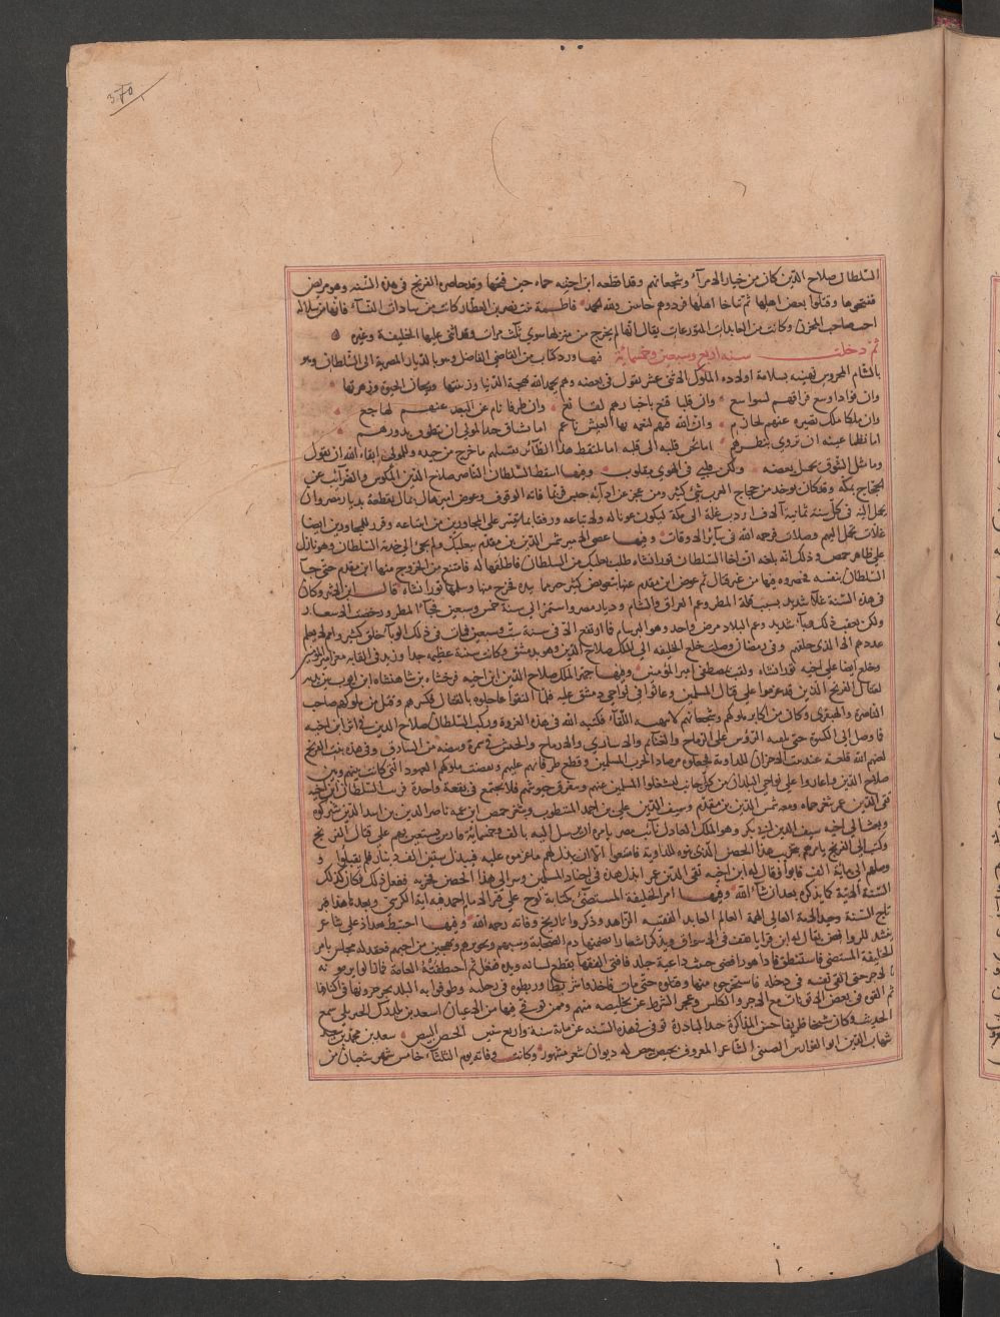 370
السلطان صلاح الدين كان من خيار الامراء وشجعانهم وقد اقطعه ابن اخيه حماه حين فتحها وقد حاصره الفرنج في هذه السنه وهو مريض
ففتحوها وقتلوا بعض اهلها ثم تناخا اهلها فردوهم خاسين ولله الحمد فاطمة بنت نصر بن العطار كانت من سادات النساء
اخت صاحب المخزن وكانت من العابدات المتورعات يقال انها لم تخرج من منزلها سوى ثلث مرات وقد اثنى عليها الخليفة وغيره
ثم دخلت سنه اربع وسبعين وخمسمائة فيها ورد كتاب من القاضي الفاضل من الديار المصرية الى السلطان وهو
بالشام المحروس تهنيه بسلامة اولاده الملوك الاثني عشر يقول في بعضه وهم بحمد الله بهجة الدنيا وزينتها وريحان الحيوة وزهرتها
وان فوادا وسع فراقهم لواسع وان قلبا قنع باخبارهم لقانع وان طرفا نام عن البعد عنهم لهاجع
وان ملكا ملك تصبره عنهم لحازم وان نعمة الله فيهم لنعمة بها العيش ناعم اما يشتاق جيد المولى ان يتطوق بدررهم
اما تظما عينه ان تروى بنظرهم اما يحن قلبه الى قلبه اما يلتقط هذا الطائر بتسليم ما خرج من حبه وللمولى ابقاه الله ان يقول
وما مثل الشوق يحمل بعضه ولكن قلبي في الهوى يتقلب وفيها اسقط السلطان الناصر صلاح الدين المكوس والضرائب عن
الحجاج بمكه وقد كان يوخذ من حجاج الغرب شيء كثير ومن عجز عن ادائه حبس فربما فاته الوقوف وعوض اميرها بمال يقطعه بديار مصر وان
يحمل اليه في كل سنة ثمانية آلاف اردب غلة الى مكة ليكون عونا له ولاتباعه ورفقا بما يتيسر على المجاورين من ابتياعه وقرر للمجاورين ايضا
غلات تحمل اليهم وصلات فرحمه الله في ساير الاوقات وفيها عصى الامير شمس الدين بن مقدم ببعلبك ولم يجئ الى خدمة السلطان وهو نازل
على ظاهر حمص وذلك انه بلغه ان اخا السلطان تورانشاه طلب بعلبك من السلطان فاطلقها له فامتنع من الخروج منها ابن مقدم حتى جاء
السلطان بنفسه فحصره فيها من غير قتال ثم عوض ابن مقدم عنها بتعويض كثير خير مما بيده فخرج منها وسلمها تورانشاه قال ابن الاثير وكان
في هذه السنة غلاء شديد بسبب قلة المطر وعم العراق والشام وديار مصر واستمر الى سنة خمس وسبعين فجاء المطر ورخصت الاسعار
ولكن يعقب ذلك وباء شديد وعم البلاد مرض واحد وهو البرسام فما ارتفع الا في سنة ست وسبعين فمات في ذلك الوباء خلق كثير وامم لا يعلم
عددهم الا الذي خلقهم وفي رمضان وصلت خلع الخليفه الى الملك صلاح الدين وهو بدمشق وكانت سنية عظيمه جدا وزيد في القابه معز امير المومنين
وخلع ايضا على اخيه تورانشاه ولقب بمصطفى امير المومنين وفيها جهز الملك صلاح الدين ابن اخيه فرخشاه بن شاهنشاه بن ايوب بين يديه
لقتال الفرنج الذين قد عزموا على قتال المسلمين وعاثوا في نواحي دمشق فلما التقوا عاجلوه بالقتال فكسرهم وقتل من ملوكهم صاحب
الناصرة والهنفري وكان من اكابر ملوكهم وشجعانهم لا ينهنهه اللقاء فكبته الله في هذه الغزوة وركب السلطان صلاح الدين في اثر ابن اخيه
فما وصل الى الكسوة حتى تلقته الروس على الرماح والغنائم والاسارى وفي هذه بنت الفرنج
لعنهم الله قلعة عند بيت الاحزان للداوية فجعلوه مرصاد الحرب المسلمين وقطع طرقاتهم عليهم ونقضت ملوكهم العهود التي كانت بينهم وبين
صلاح الدين واغاروا على نواحي البلدان من كل جانب ليشغلوا المسلمين عنهم وتتفرق جيوشهم فلا تجتمع في بقعة واحدة فرتب السلطان ابن اخيه
تقي الدين عمر بثغر حماه ومعه شمس الدين بن مقدم وسيف الدين علي بن احمد المشطوب وبثغر حمص ابن عمه ناصر الدين بن اسد الدين شيركوه
وبعث الى اخيه سيف الدين ابي بكر وهو الملك العادل نائب مصر يامره ان يرسل اليه بالف وخمسمائة فارس يستعين بهم على قتال الفرنج
وكتب الى الفرنج يامرهم بتخريب هذا الحصن الذي بنوه للداوية فامتنعوا الا ان يبذل لهم ما غرموا عليه فبذل ستين الف دينار فلم يقبلوا
وصلهم الى مائة الف فابوا فقال له ابن اخيه تقي الدين عمر ابذل هذه في اجناد المسلمين وسر الى هذا الحصن فخربه ففعل ذلك فكان كذلك
السنة الاتية كما يذكره بعد ان شاء الله وفيها امر الخليفة المستضيء بكتابة لوح على قبر الامام احمد فيه اية الكرسي وبعدها هذا قبر
تاج السنة وحيد الامة العالي الهمة العالم العابد الفقيه الزاهد وذكروا تاريخ وفاته رحمه الله وفيها احتيط ببغداد على شاعر
ينشد للروافض يقال له ابن قرايا يقف في الاسواق ويذكر اشعارا يضمنها ذم الصحابة وسبهم وتجويرهم وتهجين من احبهم فعقد له مجلس بامر
الخليفة المستضي فاستنطق فاذا هو رافضي خبيث داعية جلد فافتى الفقها بقطع لسانه ويديه ففعل ثم اختطفته العامة فما زالوا يرمونه
بالاجر حتى القى نفسه في دجله فاستخرجوه منها وقتلوه حتى مات فاخذوا شريطا وربطوه في رجليه وطوفوا به البلد يجرجرونها في اكنافها
ثم القوه في بعض الاتونات مع الاجر والكلس وعجز الشرط عن تخليصه منهم وممن توفي فيها من الاعيان اسعد بن بلدرك الجبريلي سمع
الحديث وكان شيخا ظريفا حسن المذاكرة جيد المبادرة توفي في هذه السنه عن مايه سنة واربع سنين الحيص بيص سعد بن محمد بن سعد
شهاب الدين ابو الفوارس الصيفي الشاعر المعروف بحيص بيص له ديوان شعر مشهور وكانت وفاته يوم الثلثا خامس شهر شعبان من